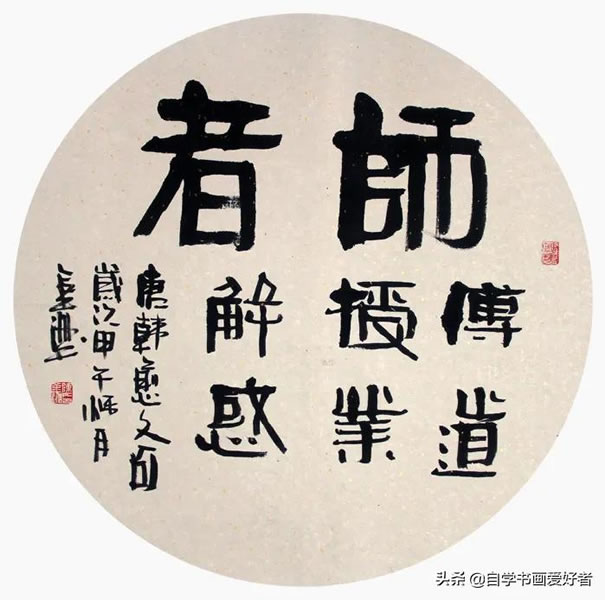 師者
傳道
授業
解惑
唐韓愈文句
歲次甲午月
头条 @自学书画爱好者